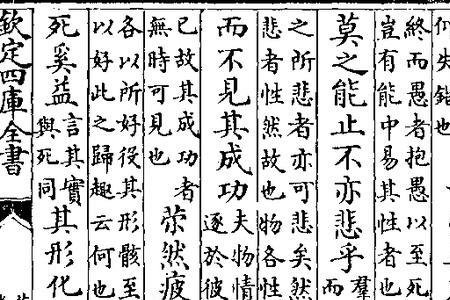 失錯也
終而愚者抱愚以至死
豈有能中易其性者也
莫之能止不亦悲乎
羣
而
之所悲者亦可悲矣然
悲者性然故也物各性
而不見其成功
夫物情
逐於彼
已故其成功者
無時可見也
苶然疲
各以所好役其形骸至
以好此之歸趣云何也
死奚益
言其實
與死同
其形化
欽定四庫全書